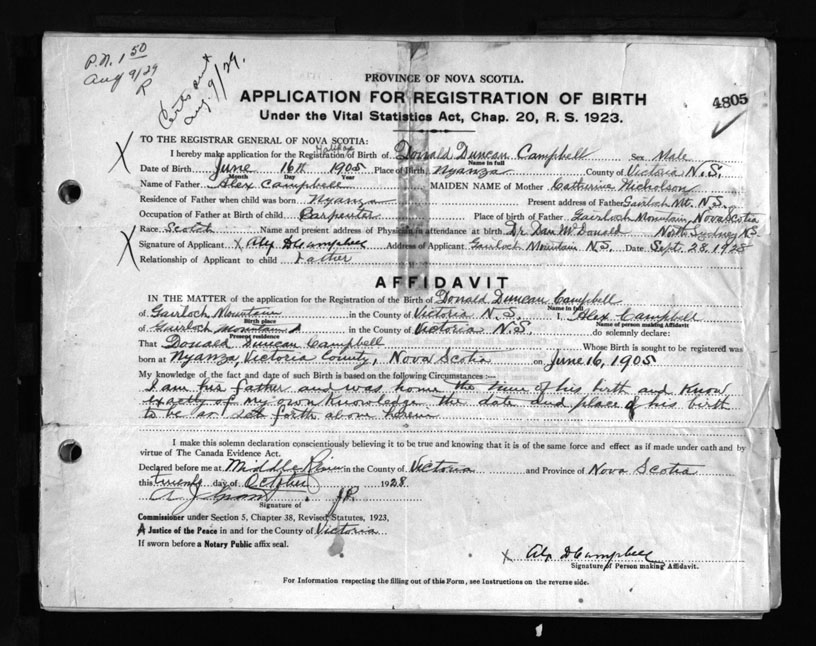 P.N. 1 50
Aug 9/29
R
Certs sent
Aug. 9/29.
PROVINCE OF NOVA SCOTIA.
APPLICATION FOR REGISTRATION OF BIRTH
4805
Under the Vital Statistics Act, Chap. 20, R. S. 1923.
X
TO THE REGISTRAR GENERAL OF NOVA SCOTIA:
I hereby make application for the Registration of Birth of Donald Duncan Campbell Sex Male
Name in full
Date of Birth June 16th 1905 Place of Birth Nyanza County of Victoria N.S.
Month Day Year
Name of Father Alex Campbell MAIDEN NAME of Mother Catherine Nicholson
Residence of Father when child was born Nyanza Present address of Father Gairloch Mt. N.S.
Occupation of Father at Birth of child Carpenter Place of birth of Father Gairloch Mountain, Nova Scotia
Race Scotch Name and present address of Physician in attendance at birth Dr. Dan McDonald North Sydney N.S.
X
Signature of Applicant X Alex D Campbell Address of Applicant Gairloch Mountain N.S. Date Sept. 28, 1928
Relationship of Applicant to child Father
AFFIDAVIT
IN THE MATTER of the application for the Registration of the Birth of Donald Duncan Campbell
Name in full
of Gairloch Mountain in the County of Victoria N.S. I, Alex Campbell
Birth place Name of person making Affidavit
of Gairloch Mountain in the County of Victoria N.S. do solemnly declare:
Present residence
That Donald Duncan Campbell Whose Birth is sought to be registered was
born at Nyanza, Victoria County, Nova Scotia on June 16, 1905
My knowledge of the fact and date of such Birth is based on the following Circumstances:—
I am his father and was home the time of his birth and know
exactly of my own knowledge the date and place of his birth
to be as set forth above herein
I make this solemn declaration conscientiously believing it to be true and knowing that it is of the same force and effect as if made under oath and by
virtue of The Canada Evidence Act.
Declared before me at Middle River in the County of Victoria and Province of Nova Scotia
this day of October 1928.
A J Grant J.P.
Signature of
Commissioner under Section 5, Chapter 38, Revised Statutes, 1923,
A Justice of the Peace in and for the County of Victoria
If sworn before a Notary Public affix seal.
X Alex D Campbell
Signature of Person making Affidavit.
For Information respecting the filling out of this Form, see Instructions on the reverse side.